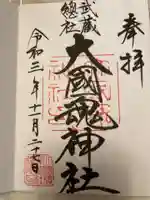 奉拝
武蔵
總社
大國魂神社
令和三年十一月二十七日